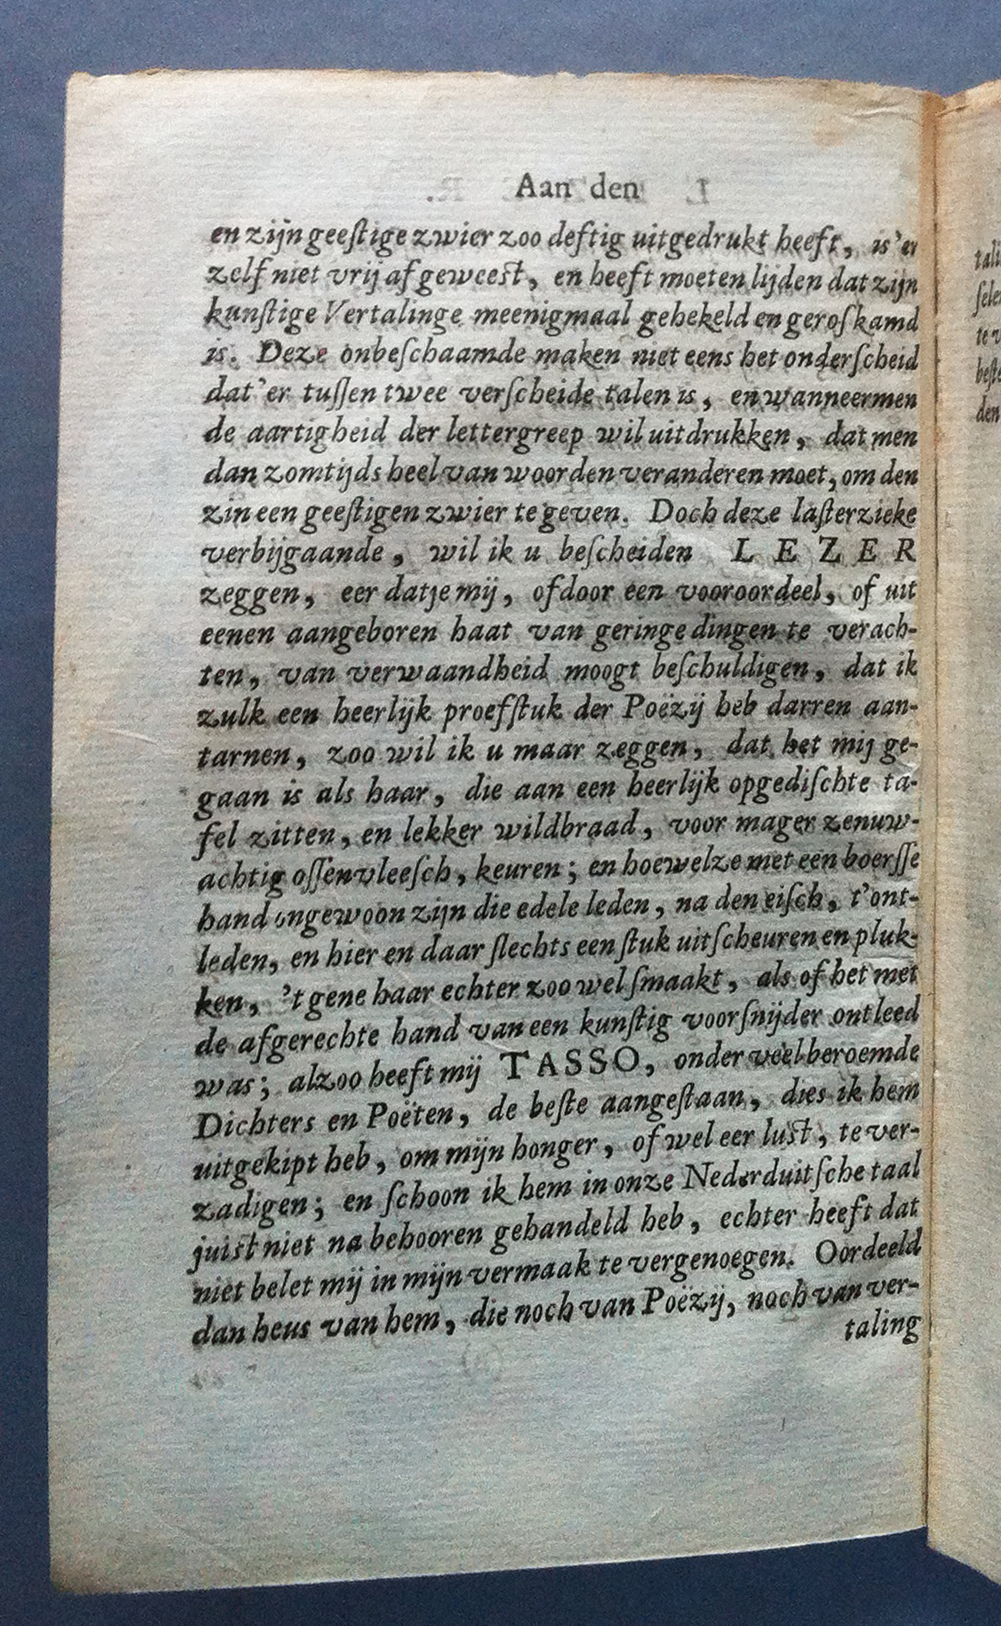 Aan den
en zijn geeſtige zwier zoo deftig uitgedrukt heeft, is'er
zelf niet vrij af geweeſt, en heeft moeten lijden dat zijn
kunſtige Vertalinge meenigmaal gehekeld en geroſkamd
is. Deze onbeſchaamde maken niet eens het onderſcheid
dat'er tuſſen twee verſcheide talen is, en wanneermen
de aartigheid der lettergreep wil uitdrukken, dat men
dan zomtijds heel van woorden veranderen moet, om den
zin een geeſtigen zwier te geven. Doch deze laſterzieke
verbijgaande, wil ik u beſcheiden LEZER
zeggen, eer datje mij, of door een vooroordeel, of uit
eenen aangeboren haat van geringe dingen te verach-
ten, van verwaandheid moogt beſchuldigen, dat ik
zulk een heerlijk proefſtuk der Poëzij heb darren aan-
tarnen, zoo wil ik u maar zeggen, dat het mij ge-
gaan is als haar, die aan een heerlijk opgediſchte ta-
fel zitten, en lekker wildbraad, voor mager zenuw-
achtig oſſenvleeſch, keuren; en hoewelze met een boerſſe
hand ongewoon zijn die edele leden, na den eiſch, t'ont-
leden, en hier en daar ſlechts een ſtuk uitſcheuren en pluk-
ken, 't gene haar echter zoo wel ſmaakt, als of het met
de afgerechte hand van een kunſtig voorſnijder ontleed
was; alzoo heeft mij TASSO, onder veel beroemde
Dichters en Poëten, de beſte aangeſtaan, dies ik hem
uitgekipt heb, om mijn honger, of wel eer luſt, te ver-
zadigen; en ſchoon ik hem in onze Nederduitſche taal
juiſt niet na behooren gehandeld heb, echter heeft dat
niet belet mij in mijn vermaak te vergenoegen. Oordeeld
dan heus van hem, die noch van Poëzij, noch van ver-
taling